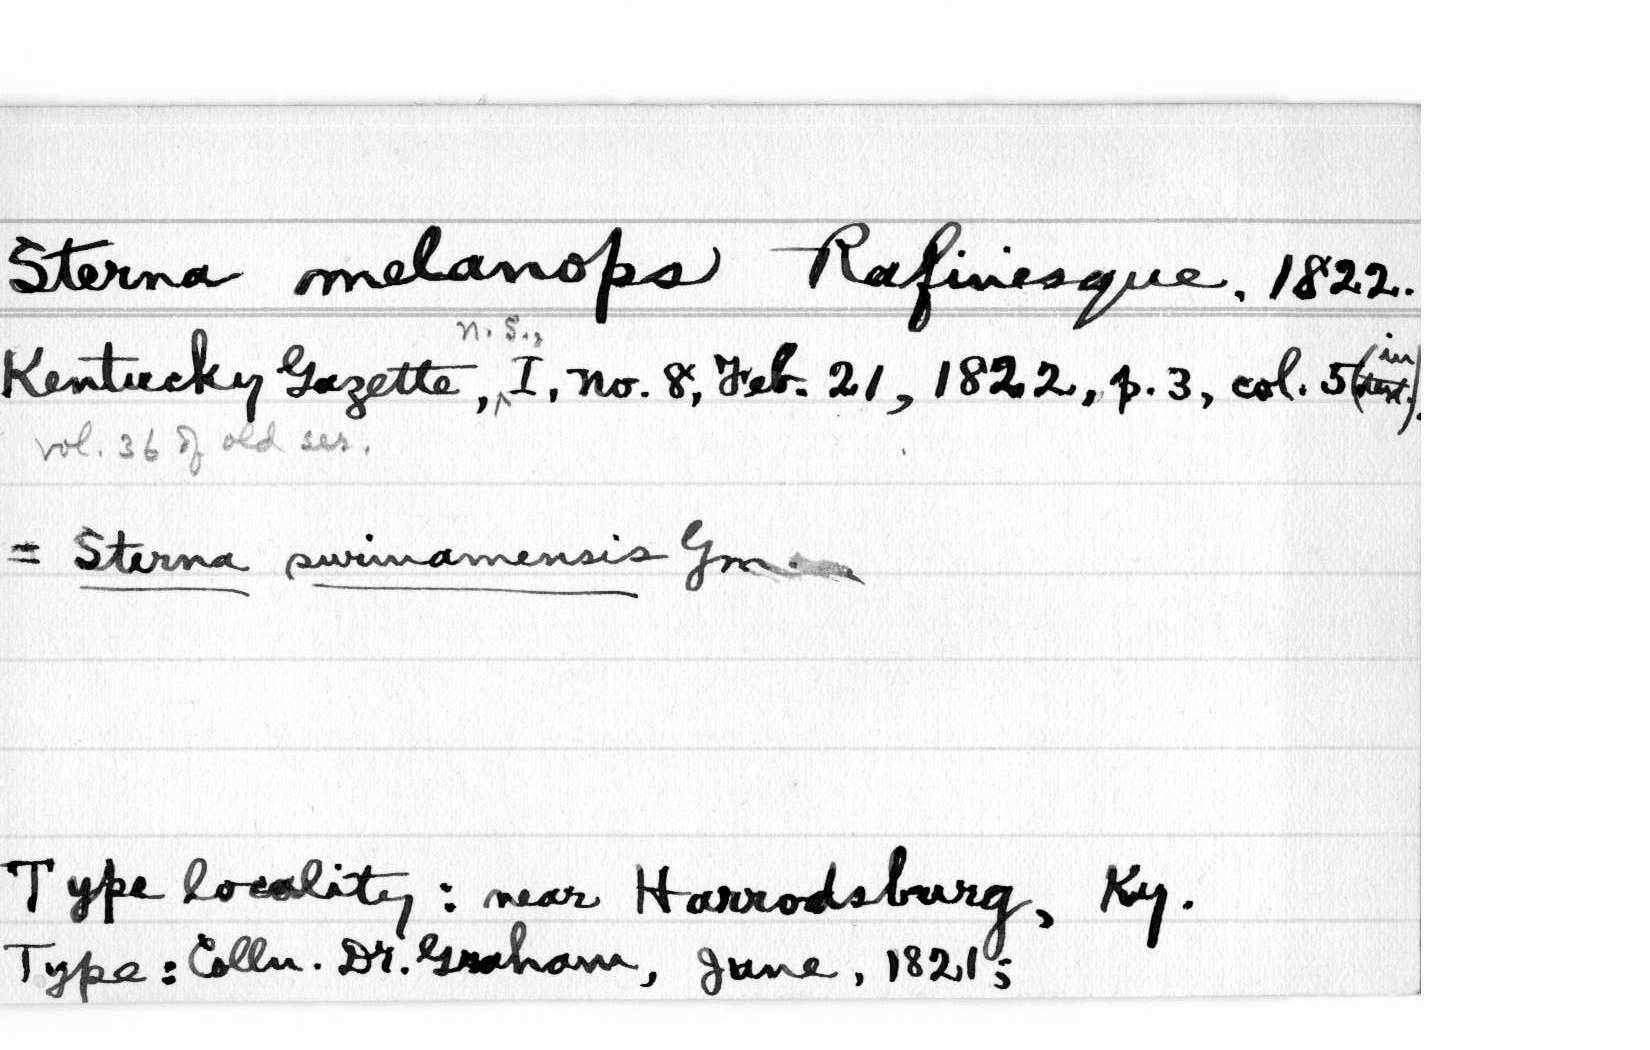 Sterna melanops Rafinesque, 1822.
Kentucky Gazette, n.s., I, no. 8, Feb. 21, 1822, p. 3, col. 5 (in text).
vol. 36 of old ser.
= Sterna surinamensis Gm.
Type locality: near Harrodsburg, Ky.
Type: Colln. Dr. Graham, June, 1821;